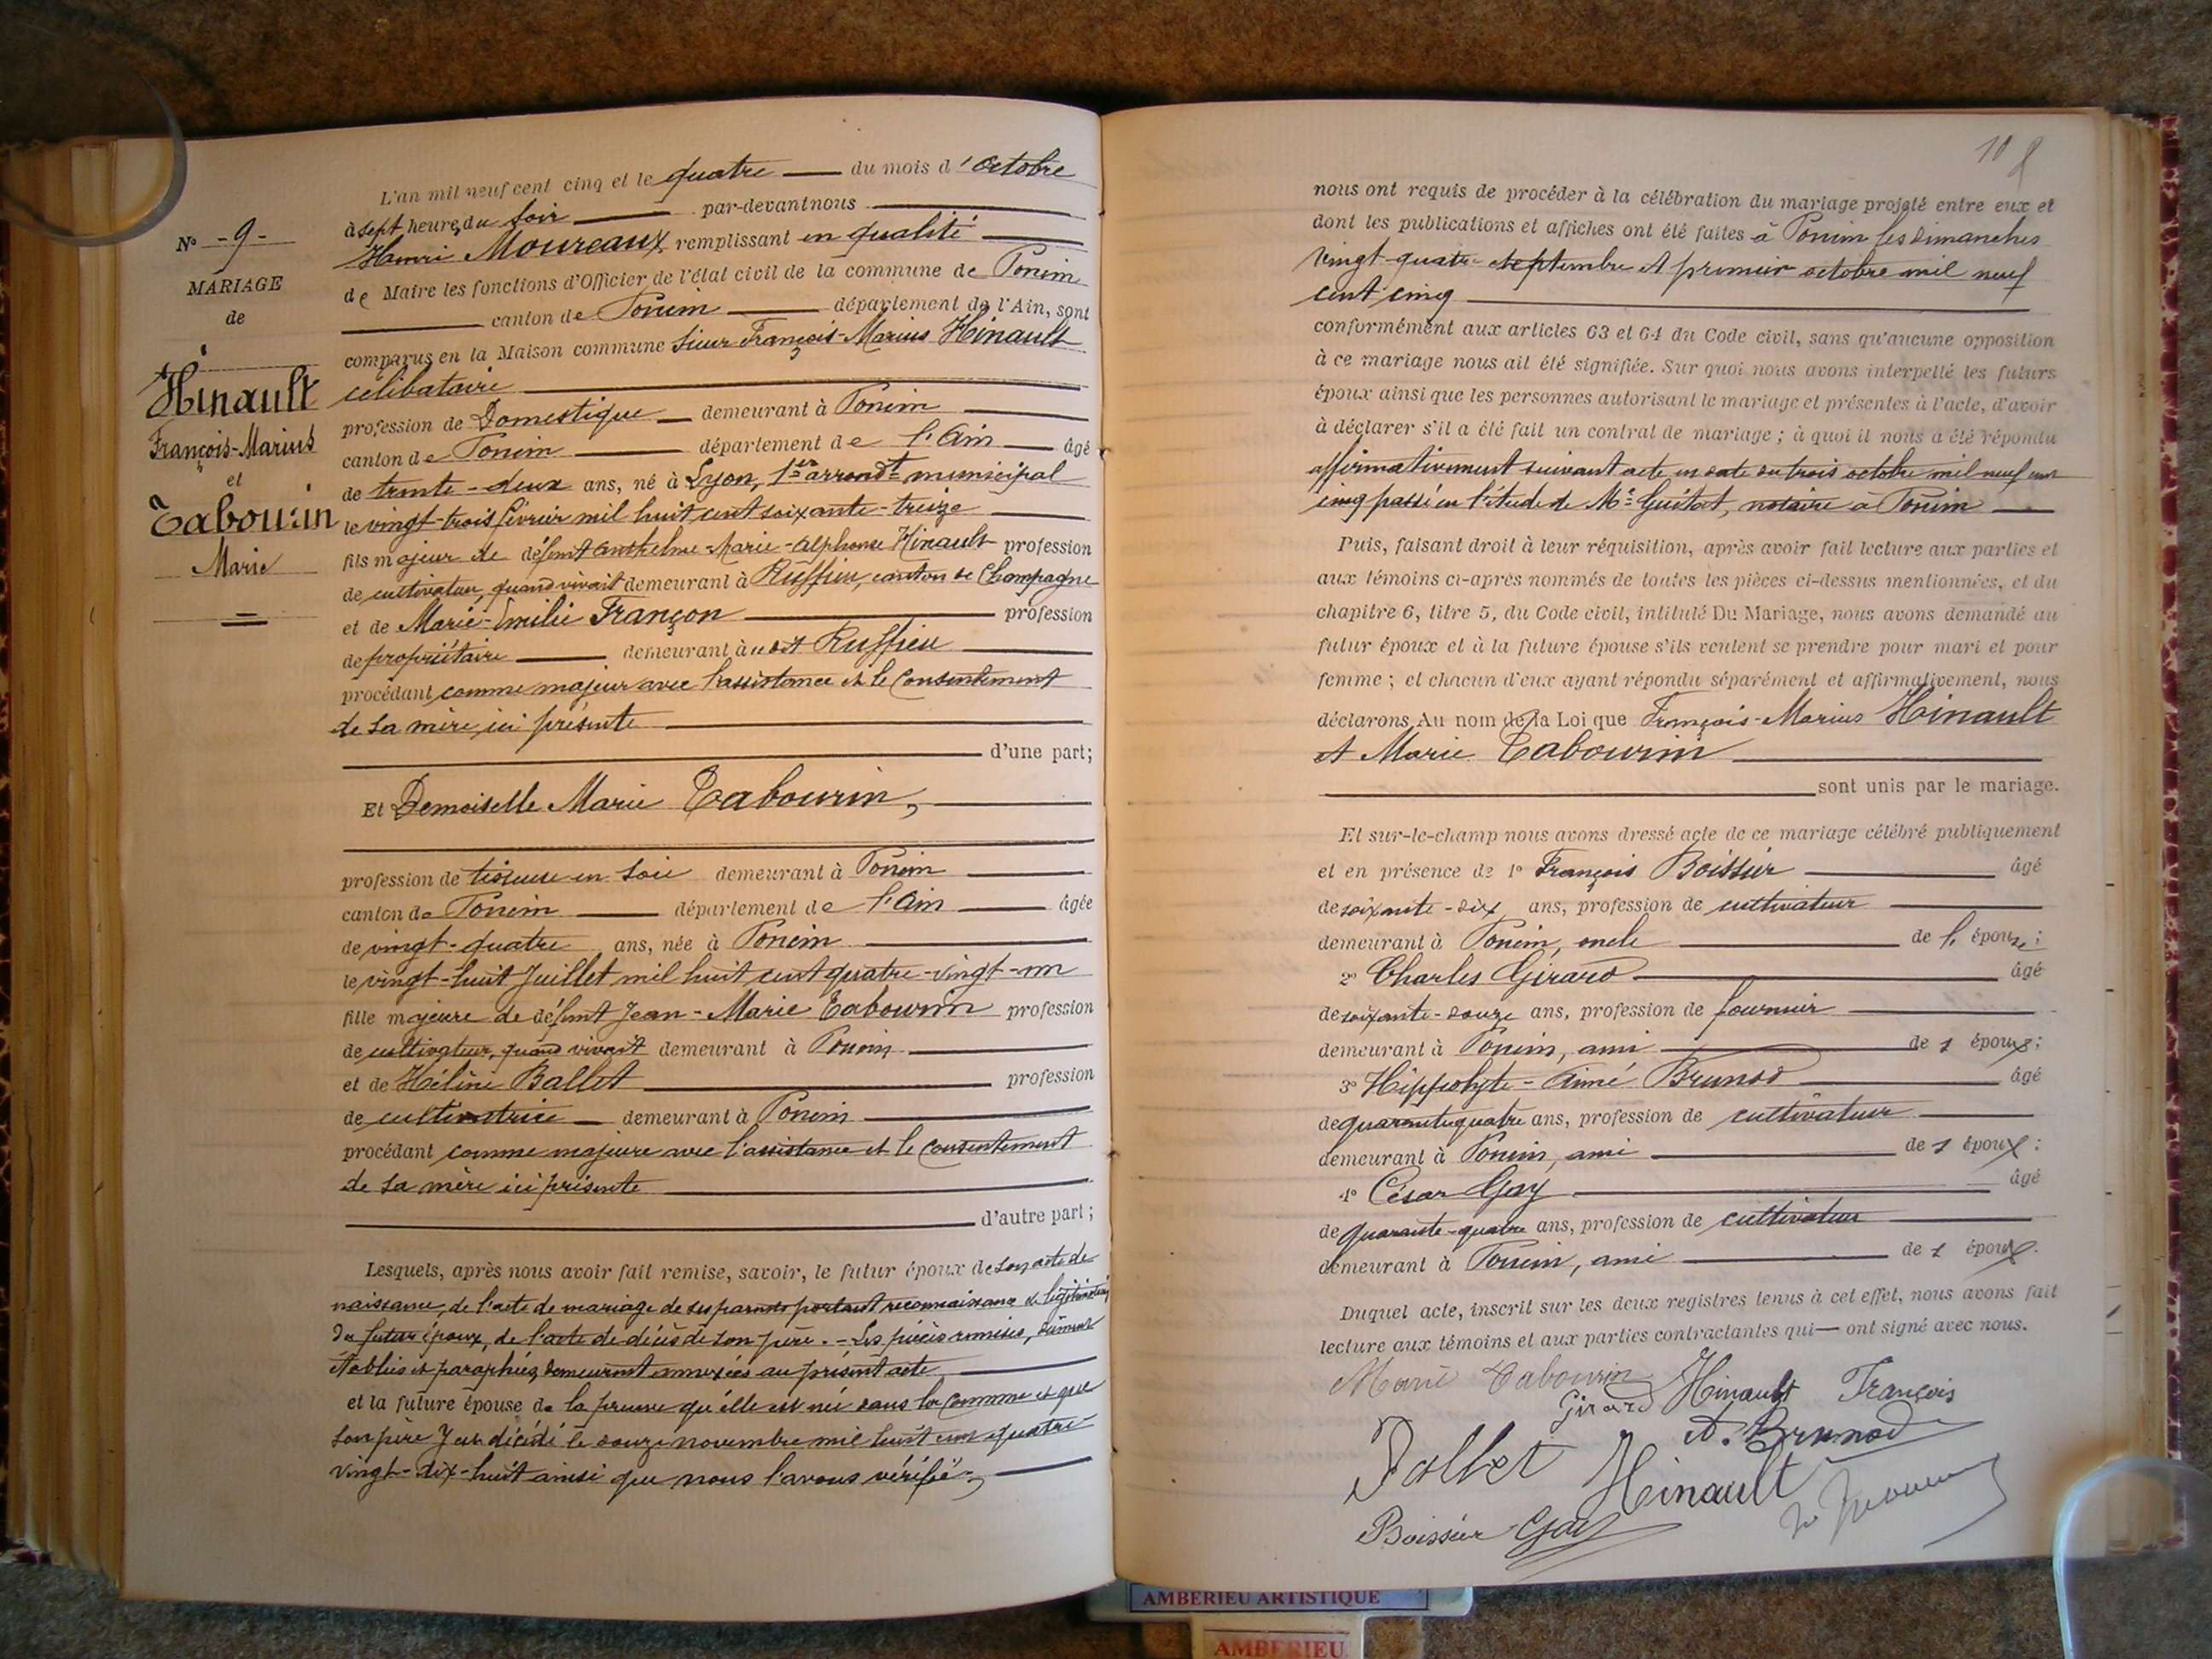 N° -9-
MARIAGE
de
Hinault
François-Marius
et
Tabourin
Marie
L'an mil neuf cent cinq et le quatre du mois d'octobre
à sept heures du soir par-devant nous
Henri Moureaux remplissant en qualité
de Maire les fonctions d'Officier de l'état civil de la commune de Poncin
canton de Poncin département de l'Ain, sont
comparus en la Maison commune Sieur François-Marius Hinault
célibataire
profession de Domestique demeurant à Poncin
canton de Poncin département de l'Ain âgé
de trente-deux ans, né à Lyon, 1er arrondt municipal
le vingt-trois février mil huit cent soixante-treize
fils majeur de défunt Anthelme-Marie-Alphonse Hinault profession
de cultivateur, quand vivait demeurant à Ruffieu, canton de Champagne
et de Marie-Emilie Françon profession
de propriétaire demeurant à udit Ruffieu
procédant comme majeur avec l'assistance et le consentement
de sa mère ici présente
d'une part;
Et Demoiselle Marie Tabourin,
profession de tisseuse en soie demeurant à Poncin
canton de Poncin département de l'Ain âgée
de vingt-quatre ans, née à Poncin
le vingt-huit Juillet mil huit cent quatre-vingt-un
fille majeure de défunt Jean-Marie Tabourin profession
de cultivateur, quand vivait demeurant à Poncin
et de Hélène Ballet profession
de cultivatrice demeurant à Poncin
procédant comme majeure avec l'assistance et le consentement
de sa mère ici présente
d'autre part;
Lesquels, après nous avoir fait remise, savoir, le futur époux de son acte de
naissance, de l'acte de mariage de ses parents portant reconnaissance et légitimation
du futur époux, de l'acte de décès de son père. - Les pièces remises, dûment
établies et paraphées, demeurent annexées au présent acte
et la future épouse de la preuve qu'elle est née dans la commune et que
son père y est décédé le douze novembre mil huit cent quatre
vingt-dix-huit ainsi que nous l'avons vérifié,
108
nous ont requis de procéder à la célébration du mariage projeté entre eux et
dont les publications et affiches ont été faites à Poncin les dimanches
vingt-quatre septembre et premier octobre mil neuf
cent cinq
conformément aux articles 63 et 64 du Code civil, sans qu'aucune opposition
à ce mariage nous ait été signifiée. Sur quoi nous avons interpellé les futurs
époux ainsi que les personnes autorisant le mariage et présentes à l'acte, d'avoir
à déclarer s'il a été fait un contrat de mariage; à quoi il nous a été répondu
affirmativement suivant acte en date du trois octobre mil neuf cent
cinq passé en l'étude de Me Guitat, notaire à Poncin
Puis, faisant droit à leur réquisition, après avoir fait lecture aux parties et
aux témoins ci-après nommés de toutes les pièces ci-dessus mentionnées, et du
chapitre 6, titre 5, du Code civil, intitulé Du Mariage, nous avons demandé au
futur époux et à la future épouse s'ils veulent se prendre pour mari et pour
femme; et chacun d'eux ayant répondu séparément et affirmativement, nous
déclarons, Au nom de la Loi que François-Marius Hinault
et Marie Tabourin
sont unis par le mariage.
Et sur-le-champ nous avons dressé acte de ce mariage célébré publiquement
et en présence de 1° François Boissier âgé
de soixante-dix ans, profession de cultivateur
demeurant à Poncin, oncle de l'épouse;
2° Charles Girard âgé
de soixante-douze ans, profession de fournier
demeurant à Poncin, ami de l époux;
3° Hippolyte-Aimé Brunod âgé
de quarante quatre ans, profession de cultivateur
demeurant à Poncin, ami de l époux;
4° César Gay âgé
de quarante-quatre ans, profession de cultivateur
demeurant à Poncin, ami de l époux.
Duquel acte, inscrit sur les deux registres tenus à cet effet, nous avons fait
lecture aux témoins et aux parties contractantes qui ont signé avec nous.
Marie Tabourin
Girard Hinault François
A. Brunod
Ballet Hinault
Boissier Gay
AMBERIEU ARTISTIQUE
AMBERIEU